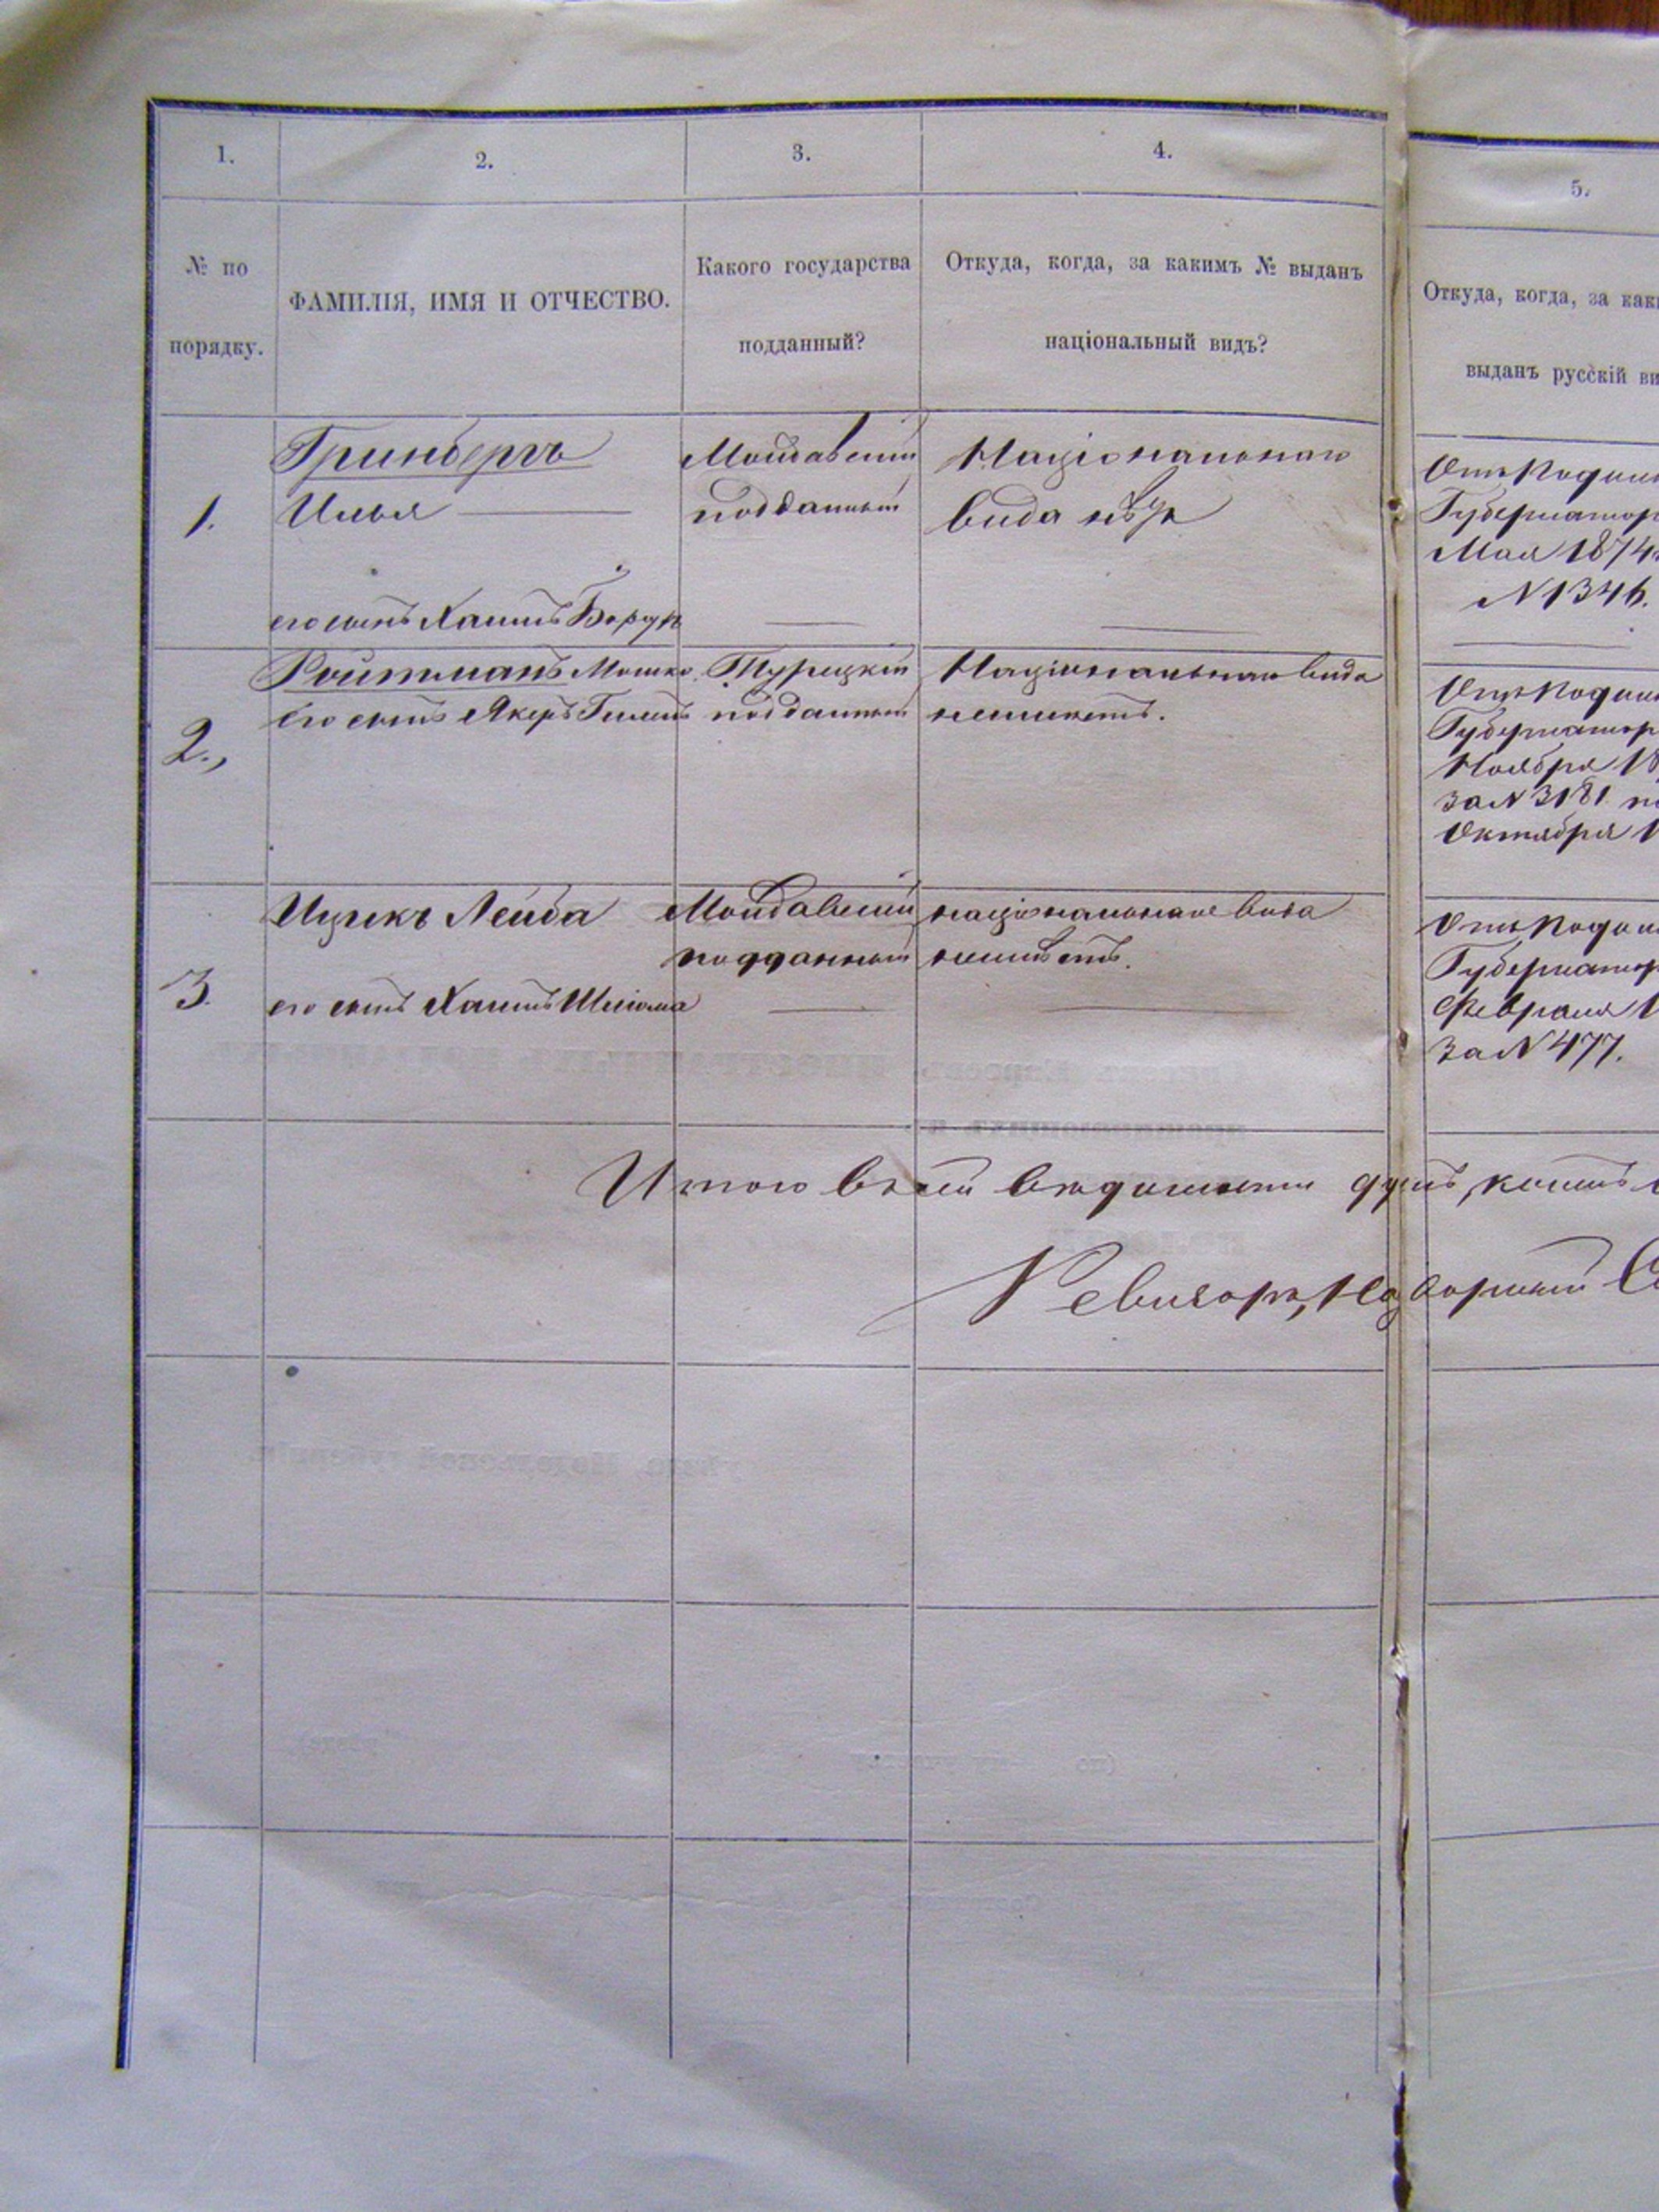 1.
2.
3.
4.
5.
№ по
порядку.
ФАМИЛІЯ, ИМЯ И ОТЧЕСТВО.
Какого государства
подданный?
Откуда, когда, за какимъ № выданъ
національный видъ?
Откуда, когда, за как
выданъ русскій ви
1.
Гринбергъ
Илья
его сынъ Хаимъ Борух
Молдавский
подданный
Національнаго
вида нѣтъ
Отъ Подоль
Губернатор
Мая 1874
№ 1346.
2.
Ройтманъ Мошко
Его сынъ
Турецкій
подданный
Національнаго вида
неимѣетъ.
Отъ Подоль
Губернатор
Ноября 18
за № 3181
Октября 1
3.
Ицикъ Лейба
его сынъ Хаимъ Шлиома
Молдавский
подданный
національнаго вида
неимѣетъ.
Отъ Подол
Губернатор
Февраля 1
за № 477.
Итого въ сей вѣдомости душъ,
Ревизоръ, Надворный Со